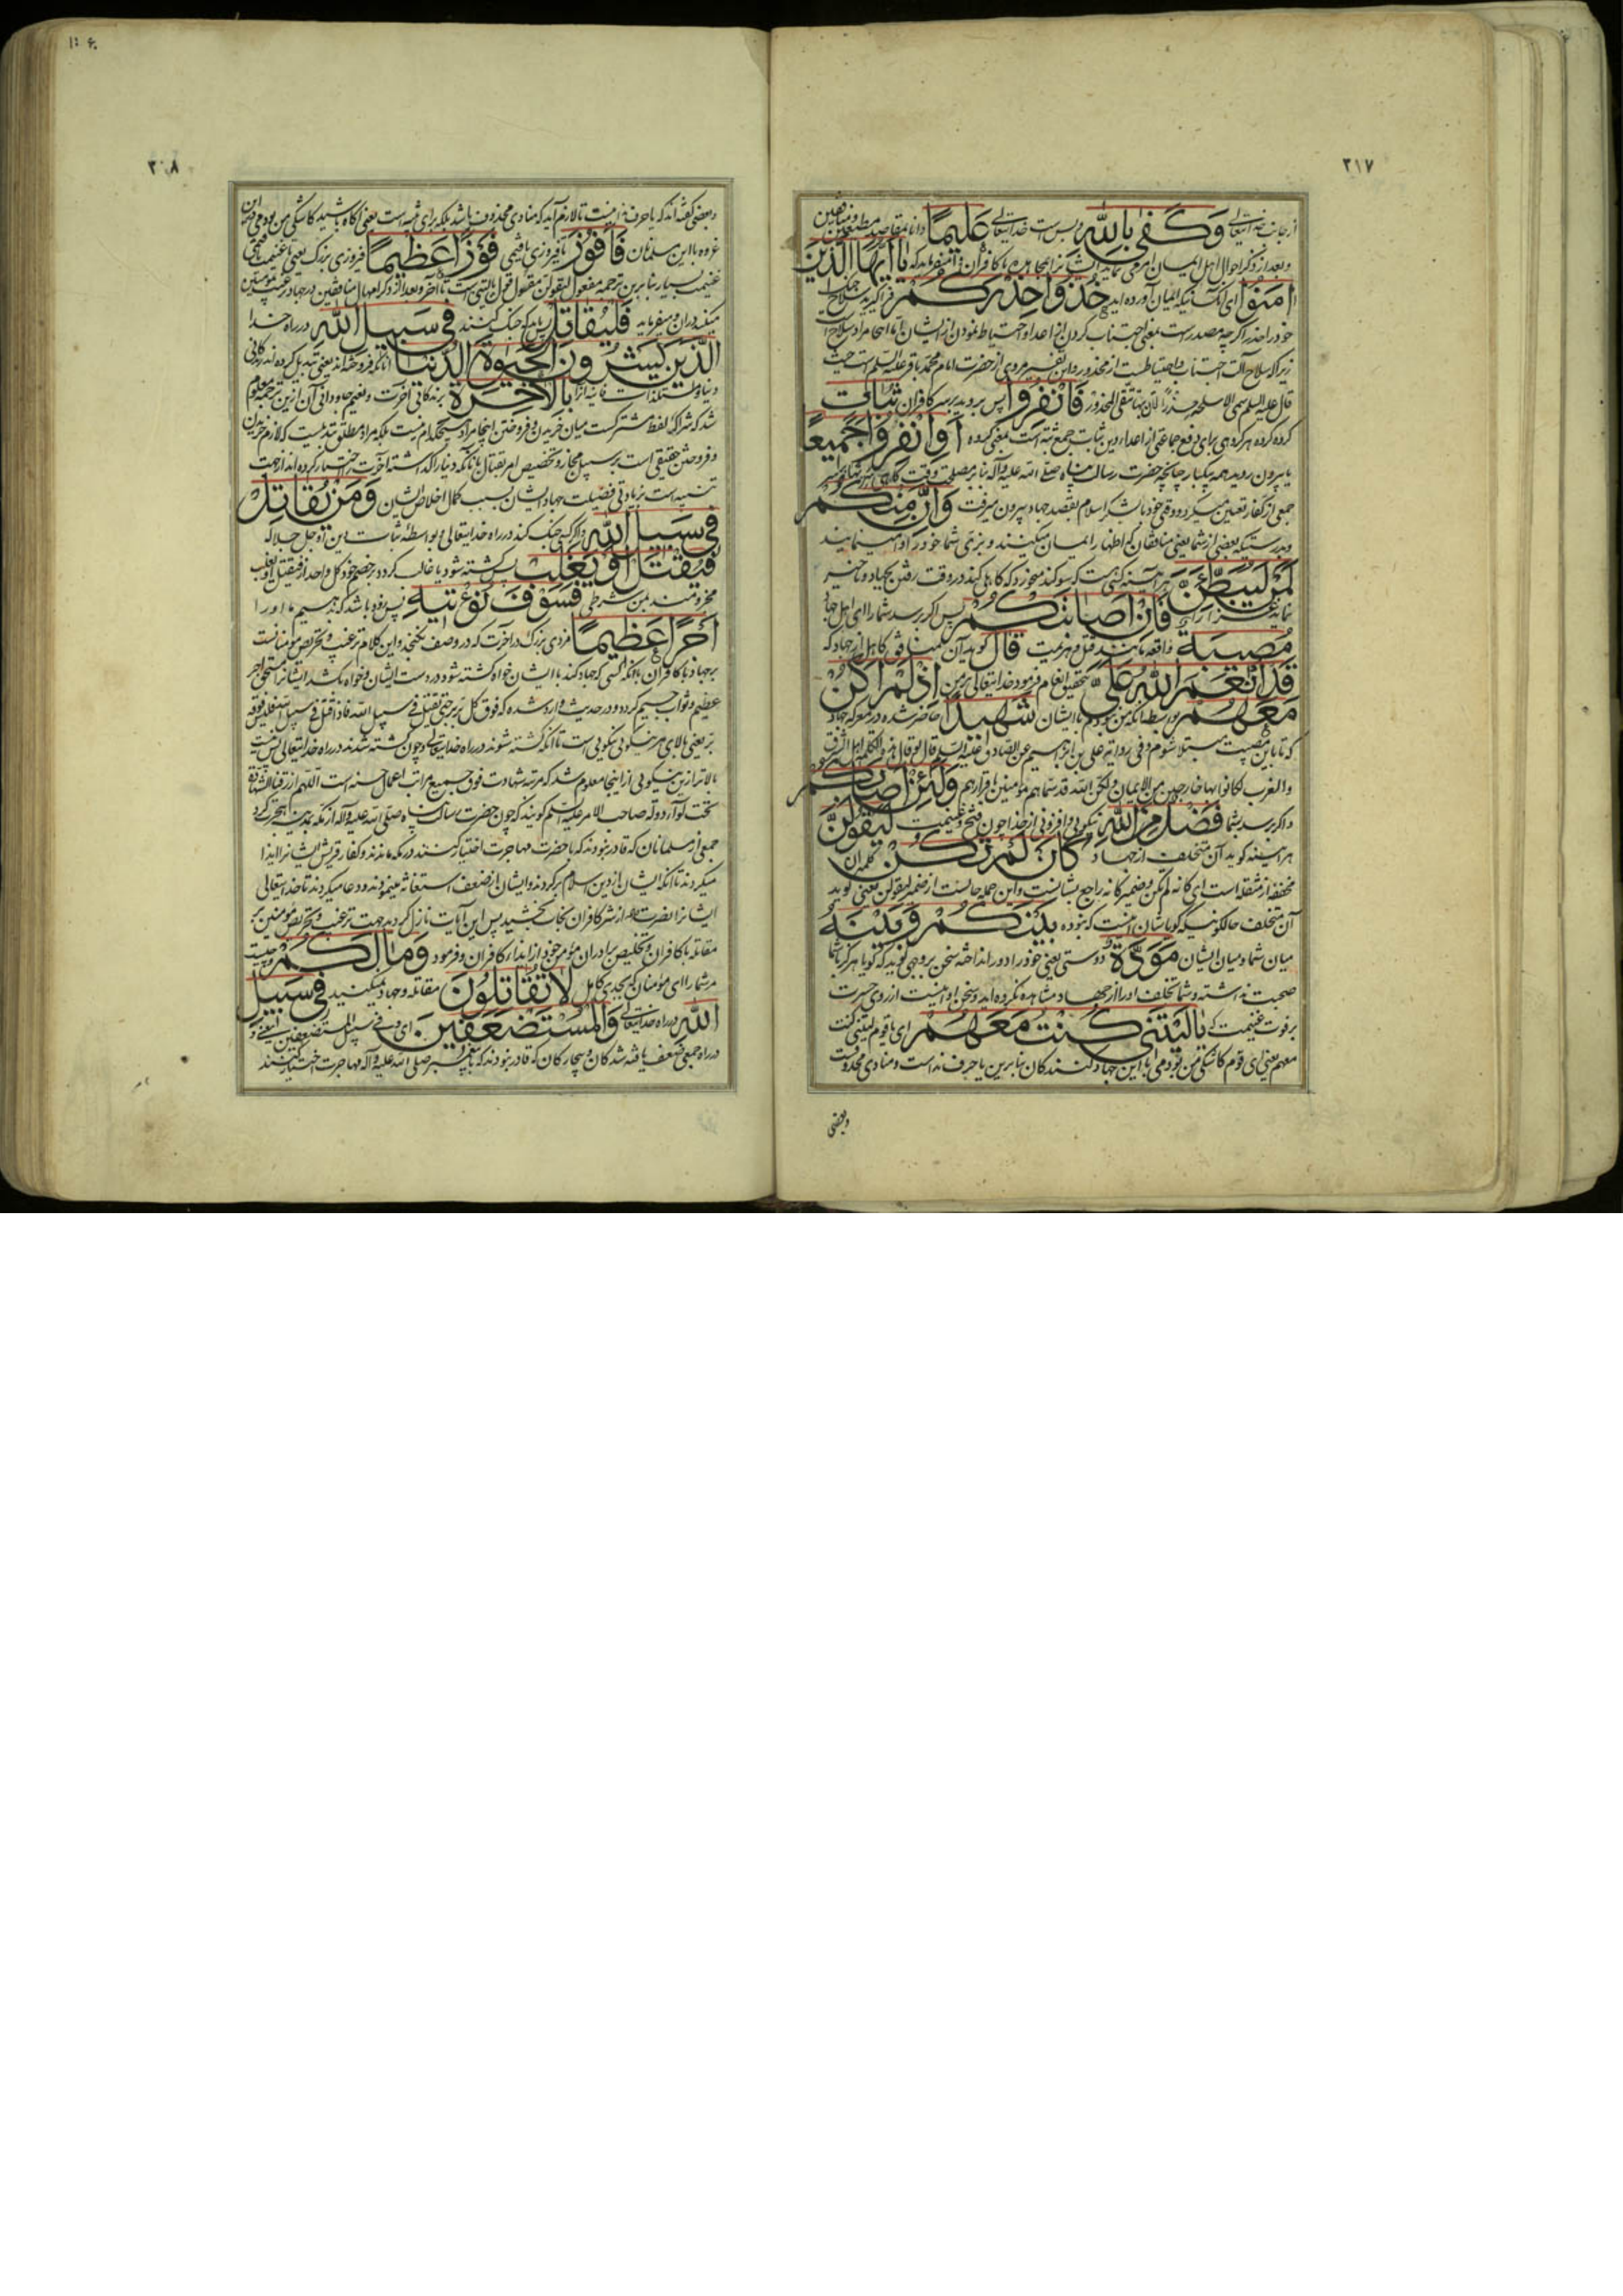 ۲۱۷
از جانب خدایتعالی وَكَفى بِاللّهِ و بس است خدایتعالی عَليمًا دانا بمقاصد مطیعین و منافقین
و بعد از ذکر احوال اهل ایمان امر می نماید ایشانرا بمجاهده با کافران و میفرماید که يا اَيُّهَا الَّذينَ
امَنُوا ای آنکسانیکه ایمان آورده اید خُذُوا حِذْرَكُمْ فرا گیرید سلاح جنگ
خود را حذر اگر چه مصدرست بمعنی اجتناب کردن از اعدا و احتیاط نمودن از ایشان اما اینجا مراد سلاح است
زیرا که سلاح آلت اجتناب و احتیاطست از محذور و این تفسیر مروی از حضرت امام محمد باقر علیه السلم است حیث
قال علیه السلم سمی الاسلحة حذرا لان بها یتقی المحذور فَانْفِرُوا پس بروید بر سر کافران ثُباتٍ
کروه کروه هر کروهی برای دفع جماعتی از اعدا دین ثبات جمع ثبه است بمعنی کروه اَوِ انْفِرُوا جَميعًا
یا بیرون روید همه بیکبار چنانچه حضرت رسالت پناه صلی الله علیه و آله بنا بر مصلحت وقت گاهی
جمعی از کفار تعیین میکرد و وقتی خود با لشکر اسلام بقصد جهاد بیرون میرفت وَاِنَّ مِنْكُمْ
و بدرستیکه بعضی از شما یعنی منافقان که اظهار ایمان میکنند و بزی شما خود را وا مینمایند
لَمَنْ لَيُبَطِّئَنَّ هر آینه کسی است که سوکند میخورد که کاهلی کند در وقت رفتن بجهاد و تاخیر
نماید فَاِنْ اَصابَتْكُمْ پس اکر برسد شما را ای اهل جهاد
مُصيبَةٌ واقعه مانند قتل و هزیمت قالَ کوید آن منافق کاهل از جهاد که
قَدْ اَنْعَمَ اللّهُ عَلَىَّ بتحقیق انعام فرمود خدایتعالی بر من اِذْ لَمْ اَكُنْ
مَعَهُمْ بواسطه آنکه من نبودم با ایشان شَهيدًا حاضر شده در معرکه جهاد
که تا باین مصیبت مبتلا شوم و فی روایة علی بن ابراهیم عن الصادق علیه السلم قال لو قال هذه الکلمة اهل الشرق
والغرب لکانوا بها خارجین من الایمان ولکن الله قد سماهم مؤمنین باقرارهم وَلَئِنْ اَصابَكُمْ
و اکر برسد بشما فَضْلٌ مِنَ اللّهِ نیکویی و افزونی از خدا چون فتح و غنیمت لَيَقُولَنَّ
هر آینه کوید آن متخلف از جهاد كَانْ لَمْ تَكُنْ کلمه ان
مخففه از مثقله است ای کانه لم تکن و ضمیر کانه راجع بشانست و این جمله حالست از ضمیر لیقولن یعنی کوید
آن متخلف حالکونیکه کویا شان اینست که نبوده بَيْنَكُمْ وَبَيْنَهُ
میان شما و میان ایشان مَوَدَّةٌ دوستی یعنی خود را دور انداخته سخن بر وجهی کوید که کویا هرکز با شما
صحبت نداشته و شما تخلف او را از جهاد مشاهده نکرده اید و سخن او اینست از روی حسرت
بر فوت غنیمت که يا لَيْتَنى كُنْتُ مَعَهُمْ ای یا قوم لیتنی کنت
معهم یعنی ای قوم کاشکی من بودمی با این جهاد کنندکان بنا برین یا حرف نداست و منادی محذوفست
وبعضی
۱۰۶
۲۰۸
و بعضی کفته اند که یا حرف ندا نیست تا لازم آید که منادی محذوف باشد بلکه برای تنبیه است یعنی آکاه باشید کاشکی من بودمی درین
غزوه با این مسلمانان فَاَفُوزَ تا فیروزی یافتمی فَوْزًا عَظيمًا فیروزی بزرک یعنی تا غنیمت یافتمی
غنیمت بسیار بنا برین ترجمه مفعول لیقولن مقول قول یا لیتنی است تا آخر و بعد از ذکر اهمال منافقین در جهاد ترغیب مؤمنین
میکند در آن و میفرماید فَلْيُقاتِلْ پس باید که جنک کنند فى سَبيلِ اللّهِ در راه خدا
الَّذينَ يَشْرُونَ الْحَيوةَ الدُّنْيا آنانکه فروخته اند یعنی تبدیل کرده اند زندکانی
دنیا و مستلذات فانیه آنرا بِالْاخِرَةِ بزندکانی آخرت و نعیم جاودانی آن ازین ترجمه معلوم
شد که شرا که لفظ مشترکست میان خریدن و فروختن اینجا مراد هیچکدام نیست بلکه مراد مطلق تبدیلست که لازم خریدن
و فروختن حقیقی است بر سبیل مجاز و تخصیص امر بقتال بآنانکه دنیا را گذاشته آخرت را اختیار کرده اند از جهت
تنبیه است بر زیادتی فضیلت جهاد ایشان بسبب کمال اخلاص ایشان وَمَنْ يُقاتِلْ
فى سَبيلِ اللّهِ و هر که جنک کند در راه خدایتعالی و بواسطه ثبات دین آن جل جلاله
فَيُقْتَلْ اَوْ يَغْلِبْ پس کشته شود یا غالب کردد بر خصم خود کل واحد از فیقتل او یغلب
مجزومند بمن شرطی فَسَوْفَ نُؤْتيهِ پس زود باشد که بدهیم ما او را
اَجْرًا عَظيمًا مزدی بزرک در آخرت که در وصف نکنجد و این کلام ترغیب و تحریص مؤمنانست
بر جهاد با کافران بآنکه کسی که جهاد کند با ایشان خواه کشته شود در دست ایشان و خواه بکشد ایشانرا مستحق اجر
عظیم و ثواب جسیم کردد و در حدیث وارد شده که فوق کل بر بر حتی یقتل فی سبیل الله فاذا قتل فی سبیل الله فلیس فوقه
بر یعنی بالای هر نیکویی نیکویی است تا آنکه کشته شوند در راه خدایتعالی و چون کشته شدند در راه خدایتعالی پس نیست
بالاتر ازین نیکویی از اینجا معلوم شد که مرتبه شهادت فوق جمیع مراتب اعمال حسنه است اللهم ارزقنا الشهادة
تحت لواء دولة صاحب الامر علیه السلم کویند که چون حضرت رسالت پناه صلی الله علیه و آله از مکه بمدینه هجرت کرد
جمعی از مسلمانان که قادر نبودند که با حضرت مهاجرت اختیار کنند در مکه ماندند و کفار قریش ایشانرا ایذا
میکردند تا آنکه ایشان از دین اسلام برکردند و ایشان از ضعف استغاثه مینمودند و دعا میکردند تا خدایتعالی
ایشانرا نصرت داد و از شر کافران نجات بخشید پس این آیات نازل کردید جهت ترغیب و تحریص مؤمنین بر
مقاتله با کافران و تخلیص برادران مؤمن خود از ایذاء کافران و فرمود وَما لَكُمْ و چیست
مر شما را ای مؤمنان که بجدی کامل لا تُقاتِلُونَ مقاتله و جهاد نمیکنید فى سَبيلِ
اللّهِ در راه خدایتعالی وَالْمُسْتَضْعَفينَ ای و فی سبیل المستضعفین یعنی و
در راه جمعی ضعف یافته شدکان و بیچارکان که قادر نبودند که با پیغمبر صلی الله علیه و آله مهاجرت اختیار کنند